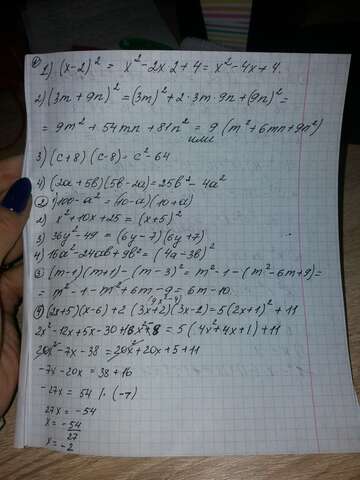 ①
1) (x-2)² = x²-2x·2+4 = x²-4x+4.
2) (3m+9n)² = (3m)²+2·3m·9n+(9n)² =
= 9m²+54mn+81n² = 9(m²+6mn+9n²)
или
3) (c+8)(c-8) = c²-64
4) (2a+5b)(5b-2a) = 25b²-4a²
② 1) 100-a² = (10-a)(10+a)
2) x²+10x+25 = (x+5)²
3) 36y²-49 = (6y-7)(6y+7)
4) 16a²-24ab+9b² = (4a-3b)²
③ (m-1)(m+1)-(m-3)² = m²-1-(m²-6m+9) =
= m²-1-m²+6m-9 = 6m-10.
(9x²-4)
④ (2x+5)(x-6)+2(3x+2)(3x-2) = 5(2x+1)²+11
2x²-12x+5x-30+18x²-8 = 5(4x²+4x+1)+11
20x²-7x-38 = 20x²+20x+5+11
-7x-20x = 38+16
-27x = 54 |·(-1)
27x = -54
x = -54/27
x = -2